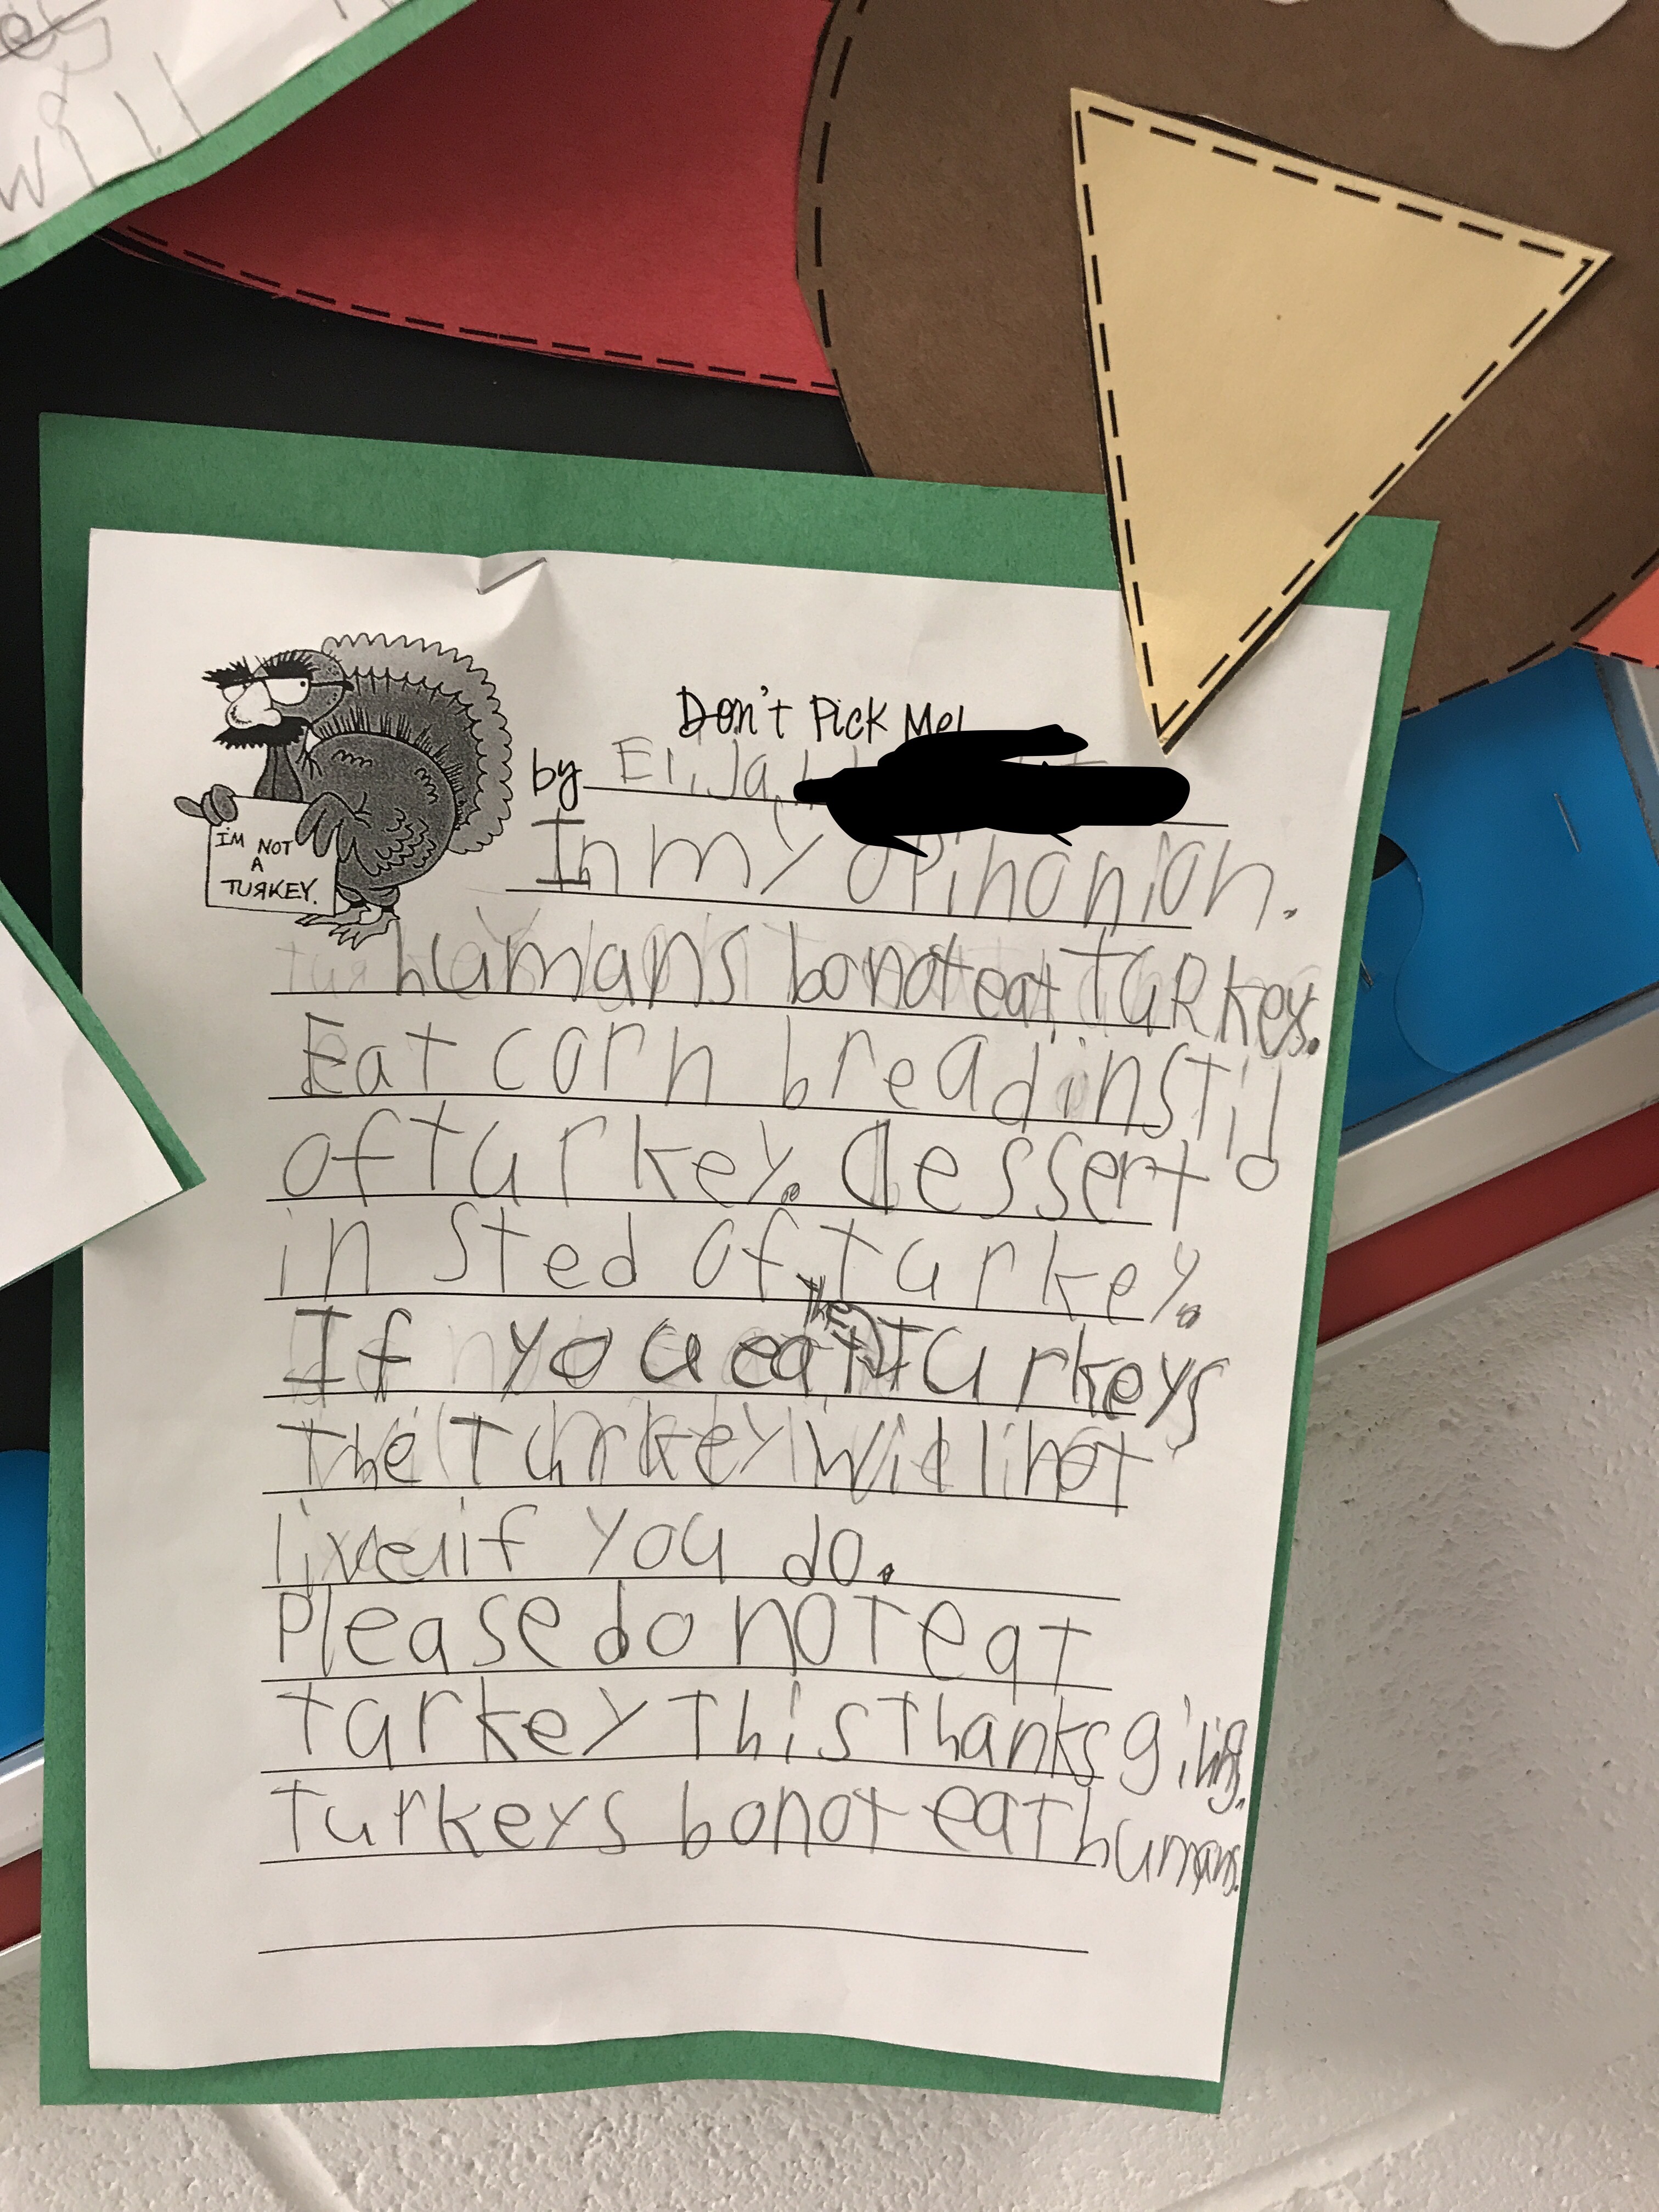 will
Don't Pick Me!
by Elijah
I'M NOT
A
TURKEY.
In my opinonion.
humans bo not eat TuRkey.
Eat corn bread instid
of turkey. dessert
in sted of turkey.
If you eat turkeys
the Turkey will not
live if you do.
Please do noT eat
turkey This Thanksgiving.
Turkeys bo not eat humans.